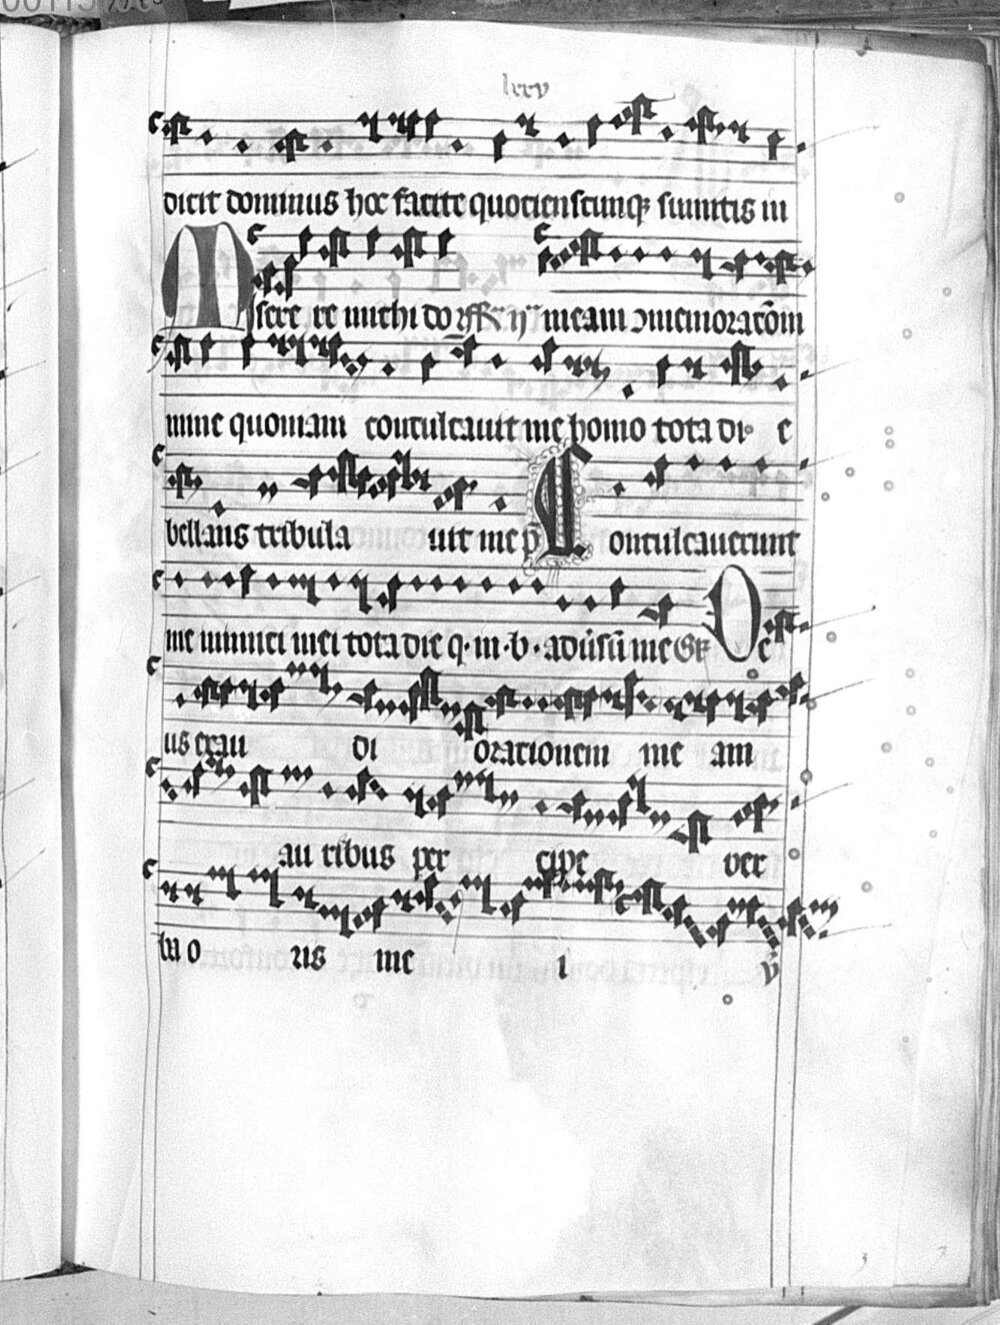 lxxv
dicit dominus hoc facite quotienscunqꝫ sumitis in
Misere re michi do meam ↄmemoracōm
mine quoniam conculcauit me homo tota di e
bellans tribula uit me p̄ Conculcauerunt
me inimici mei tota die q. m. b. adūsū me Gr De
us exau di orationem me am
au ribus per cipe ver
ba o ris me i v̄